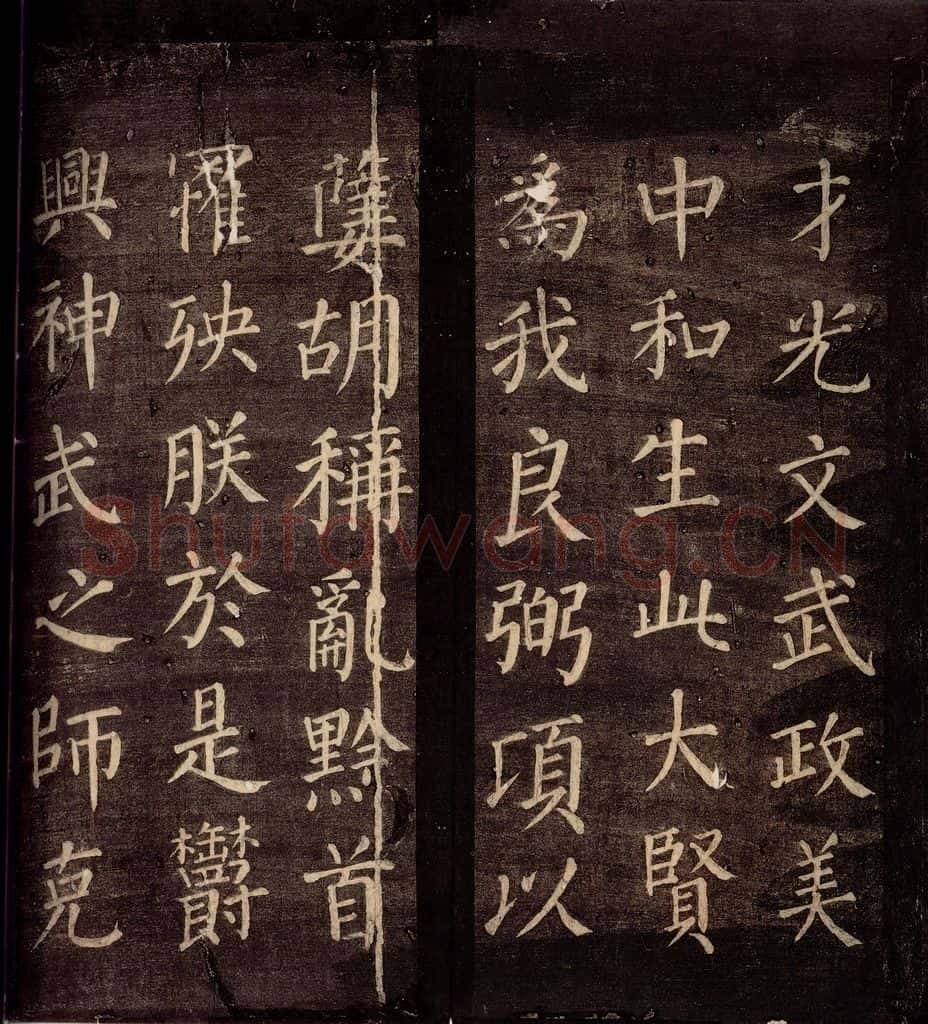 才光文武政美
中和生此大賢
為我良弼項以
孽胡稱亂黔首
罹殃朕於是鬱
興神武之師克
Shufawang.CN